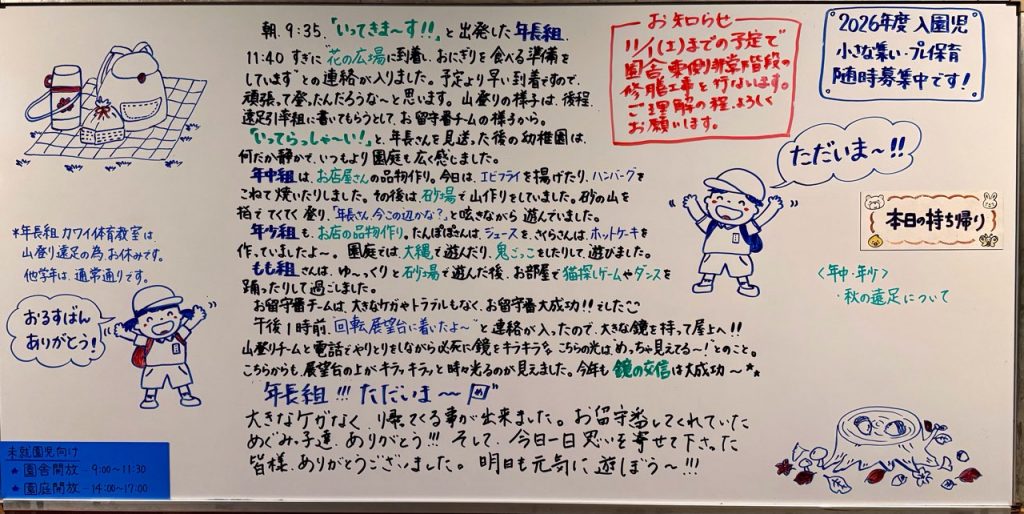 朝、9:35、「いってきま〜す!!」と出発した年長組、
11:40 すぎに“花の広場に到着、おにぎりを食べる準備を
しています”との連絡が入りました。予定より早い到着ですので、
頑張って登ったんだろうな〜と思います。山登りの様子は、後程、
遠足引率組に書いてもらうとして、お留守番チームの様子から。
「いってらっしゃ〜い!」と、年長さんを見送った後の幼稚園は、
何だか静かで、いつもより園庭も広く感じました。
年中組は、お店屋さんの品物作り。今日は、エビフライを揚げたり、ハンバーグを
こねて焼いたりしました。その後は、砂場で山作りをしていました。砂の山を
指でてくてく登り、「年長さん、今この辺かな?」と呟きながら遊んでいました。
年少組も、お店の品物作り。たんぽぽさんは、ジュースを、さくらさんは、ホットケーキを
作っていましたよ〜。園庭では、大縄で遊んだり、鬼ごっこをしたりして、遊びました。
もも組さんは、ゆ〜っくりと砂場で遊んだ後、お部屋で猫探しゲームやダンスを
踊ったりして過ごしました。
お留守番チームは、大きなケガやトラブルもなく、お留守番大成功!!そしたら
午後1時前、“回転展望台に着いたよ〜”と連絡が入ったので、大きな鏡を持って屋上へ!!
山登りチームと電話でやりとりをしながら必死に鏡をキラキラ。こちらの光は、“めっちゃ見えてる〜!”とのこと。
こちらからも、展望台の上がキラッキラッと時々光るのが見えました。今年も鏡の交信は大成功〜**
年長組!!!ただいま〜
大きなケガなく、帰ってくる事が出来ました。お留守番してくれていた
めぐみっ子達、ありがとう!!!そして、今日一日思いを寄せて下さった
皆様、ありがとうございました。明日も元気に遊ぼう〜!!!
*年長組カワイ体育教室は、
山登り遠足の為、お休みです。
他学年は、通常通りです。
おるすばん
ありがとう!
未就園児向け
★園舎開放-9:00〜11:30
★園庭開放-14:00〜17:00
お知らせ
(土)までの予定で
園舎東側非常階段の
修繕工事を行ないます。
ご理解の程、よろしく
お願います。
2026年度入園児
小さな集い・プレ保育
随時募集中です!
ただいま〜!!
本日の持ち帰り
<年中・年少>
・秋の遠足について